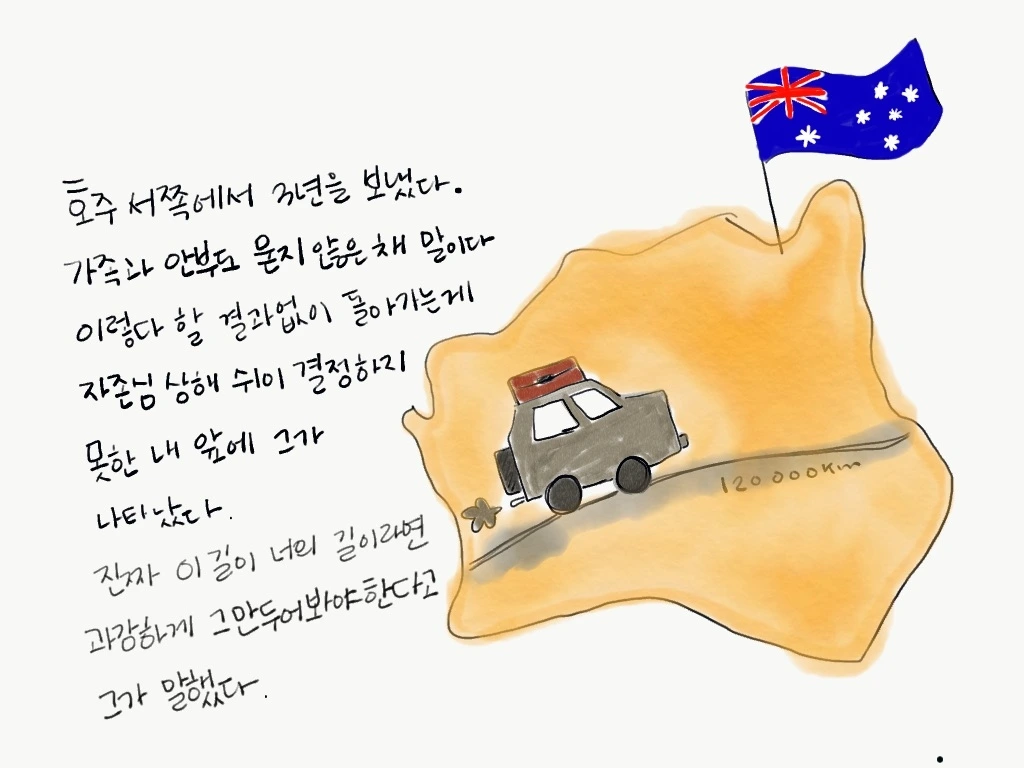 호주 서쪽에서 3년을 보냈다.
가족과 안부도 묻지 않은 채 말이다
이렇다 할 결과없이 돌아가는게
자존심 상해 쉬이 결정하지
못한 내 앞에 그가
나타났다.
진짜 이 길이 너의 길이라면
과감하게 그만두어봐야한다고
그가 말했다.
120000km